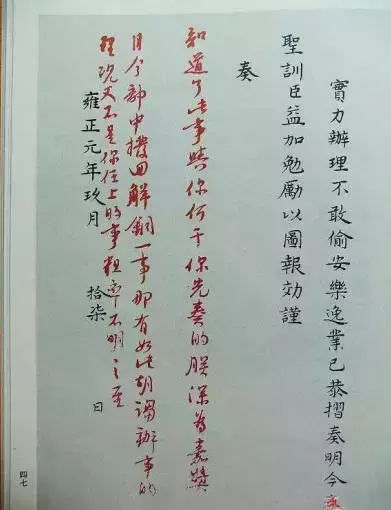 實力辦理不敢偷安樂逸業已恭摺奏明今
聖訓臣益加勉勵以圖報効謹
奏
知道了此事與你何干你先奏的朕深為嘉獎
目今部中撥回解銅一事那有如此胡謅辦事的
理况又不是你任上的事粗率不明之至
雍正元年玖月 拾柒 日
四七